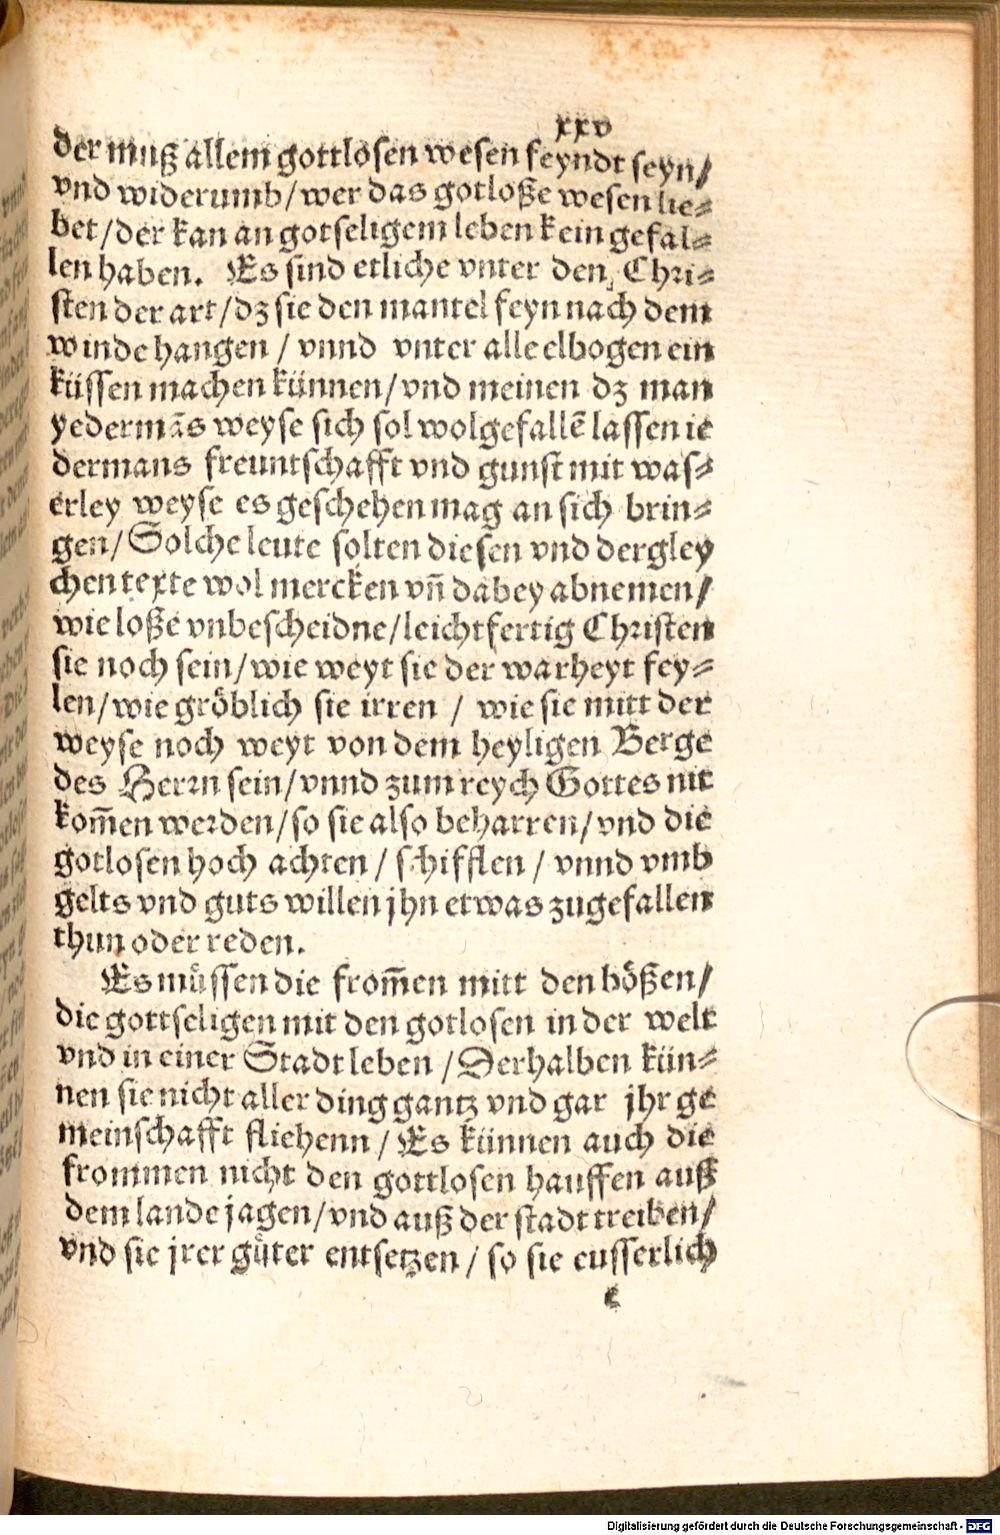 xxv
der muß allem gottlosen wesen feyndt seyn/
vnd widerumb/wer das gotloße wesen lie⸗
bet/der kan an gotseligem leben kein gefal⸗
len haben. Es sind etliche vnter den Chri⸗
sten der art/dz sie den mantel feyn nach dem
winde hangen / vnnd vnter alle elbogen ein
küssen machen künnen/vnd meinen dz man
yedermãs weyse sich sol wolgefallẽ lassen ie
dermans freuntschafft vnd gunst mit was⸗
erley weyse es geschehen mag an sich brin⸗
gen/Solche leute solten diesen vnd dergley
chen texte wol mercken vñ dabey abnemen/
wie loße vnbescheidne/leichtfertig Christen
sie noch sein/wie weyt sie der warheyt fey⸗
len/wie gröblich sie irren / wie sie mitt der
weyse noch weyt von dem heyligen Berge
des Herrn sein/vnnd zum reych Gottes nit
kom̃en werden/so sie also beharren/vnd die
gotlosen hoch achten / schifflen / vnnd vmb
gelts vnd guts willen jhn etwas zugefallen
thun oder reden.
Es müssen die from̃en mitt den bößen/
die gottseligen mit den gotlosen in der welt
vnd in einer Stadt leben / Derhalben kün⸗
nen sie nicht aller ding gantz vnd gar jhr ge
meinschafft fliehenn / Es künnen auch die
frommen nicht den gottlosen hauffen auß
dem lande jagen/vnd auß der stadt treiben/
vnd sie jrer güter entsetzen / so sie eusserlich
e
Digitalisierung gefördert durch die Deutsche Forschungsgemeinschaft - DFG